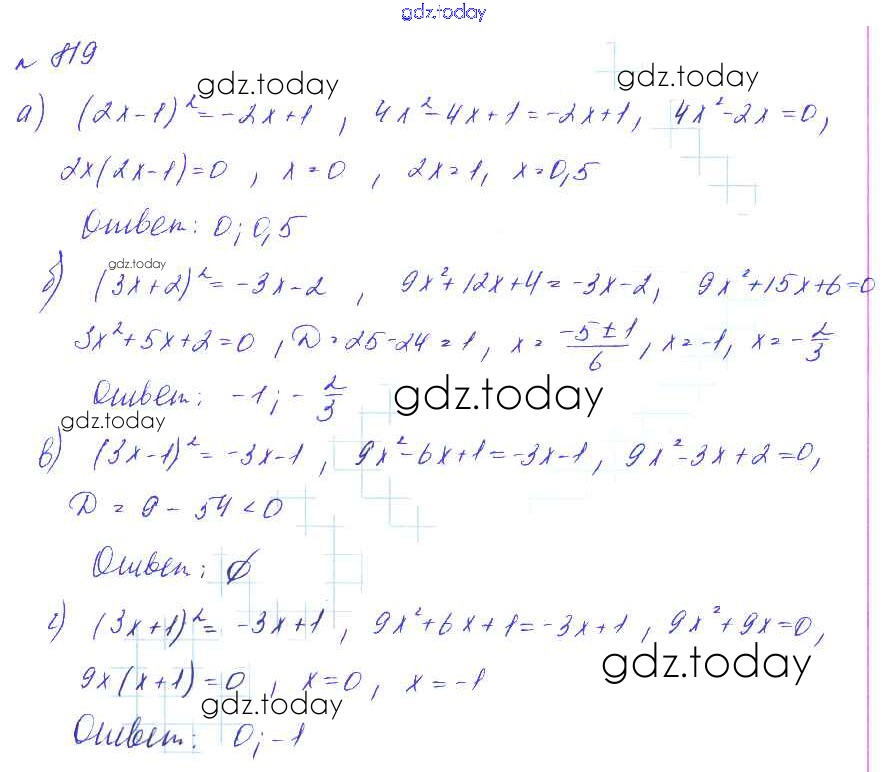 gdz.today
№ 819
gdz.today gdz.today
а) (2x-1)² = -2x+1, 4x²-4x+1=-2x+1, 4x²-2x=0,
2x(2x-1)=0, x=0, 2x=1, x=0,5
Ответ: 0; 0,5
gdz.today
б) (3x+2)² = -3x-2, 9x²+12x+4=-3x-2, 9x²+15x+6=0
3x²+5x+2=0, D=25-24=1, x=(-5±1)/6, x=-1, x=-2/3
Ответ: -1; -2/3
gdz.today
gdz.today
в) (3x-1)² = -3x-1, 9x²-6x+1=-3x-1, 9x²-3x+2=0,
D = 9 - 54 < 0
Ответ: ∅
г) (3x+1)² = -3x+1, 9x²+6x+1=-3x+1, 9x²+9x=0,
gdz.today
9x(x+1)=0, x=0, x=-1
gdz.today
Ответ: 0; -1